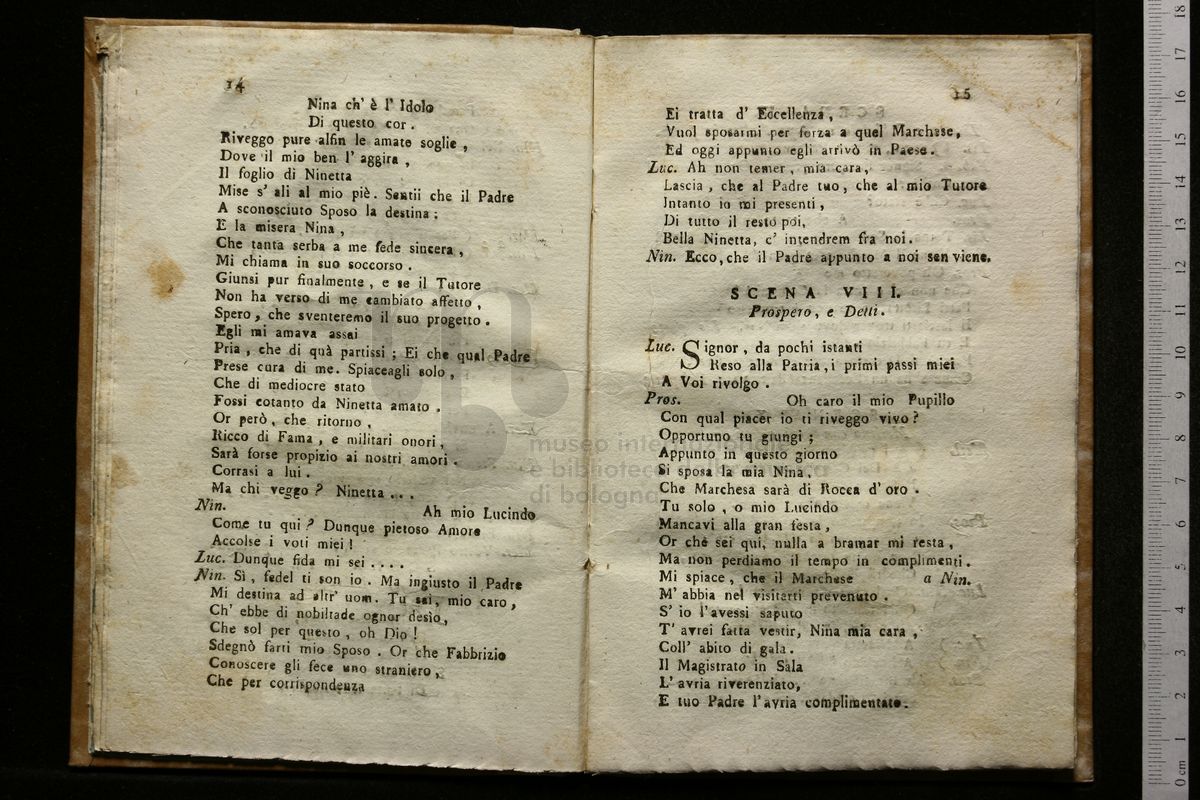 14
Nina ch' è l' Idolo
Di questo cor.
Riveggo pure alfin le amate soglie,
Dove il mio ben l' aggira,
Il foglio di Ninetta
Mise s' ali al mio piè. Sentii che il Padre
A sconosciuto Sposo la destina;
E la misera Nina,
Che tanta serba a me fede sincera,
Mi chiama in suo soccorso.
Giunsi pur finalmente, e se il Tutore
Non ha verso di me cambiato affetto,
Spero, che sventeremo il suo progetto.
Egli mi amava assai
Pria, che di quà partissi; Ei che qual Padre
Prese cura di me. Spiaceagli solo,
Che di mediocre stato
Fossi cotanto da Ninetta amato.
Or però, che ritorno,
Ricco di Fama, e militari onori,
Sarà forse propizio ai nostri amori.
Corrasi a lui.
Ma chi veggo? Ninetta...
Nin. Ah mio Lucindo
Come tu qui? Dunque pietoso Amore
Accolse i voti miei!
Luc. Dunque fida mi sei....
Nin. Sì, fedel ti son io. Ma ingiusto il Padre
Mi destina ad altr' uom. Tu sai, mio caro,
Ch' ebbe di nobiltade ognor desìo,
Che sol per questo, oh Dio!
Sdegnò farti mio Sposo. Or che Fabbrizio
Conoscere gli fece uno straniero,
Che per corrispondenza
15
Ei tratta d' Eccellenza,
Vuol sposarmi per forza a quel Marchese,
Ed oggi appunto egli arrivò in Paese.
Luc. Ah non temer, mia cara,
Lascia, che al Padre tuo, che al mio Tutore
Intanto io mi presenti,
Di tutto il resto poi,
Bella Ninetta, c' intendrem fra noi.
Nin. Ecco, che il Padre appunto a noi sen viene.
SCENA VIII.
Prospero, e Detti.
Luc. Signor, da pochi istanti
Reso alla Patria, i primi passi miei
A Voi rivolgo.
Pros. Oh caro il mio Pupillo
Con qual piacer io ti riveggo vivo?
Opportuno tu giungi;
Appunto in questo giorno
Si sposa la mia Nina,
Che Marchesa sarà di Rocca d' oro.
Tu solo, o mio Lucindo
Mancavi alla gran festa,
Or che sei qui, nulla a bramar mi resta,
Ma non perdiamo il tempo in complimenti.
Mi spiace, che il Marchese a Nin.
M' abbia nel visitarti prevenuto.
S' io l'avessi saputo
T' avrei fatta vestir, Nina mia cara,
Coll' abito di gala.
Il Magistrato in Sala
L' avria riverenziato,
E tuo Padre l'avria complimentato.
museo internazionale
e biblioteca della musica
di bologna
0 cm 1 2 3 4 5 6 7 8 9 10 11 12 13 14 15 16 17 18